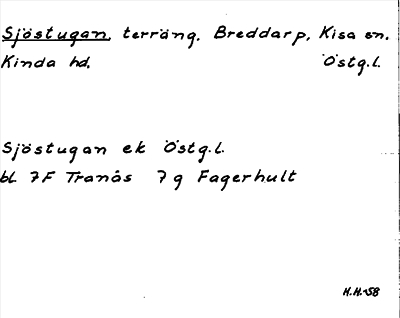 Sjöstugan, terräng. Breddarp, Kisa sn.
Kinda hd. Östg.l.
Sjöstugan ek Östg.l.
bl 7F Tranås 7g Fagerhult
H.H.-58